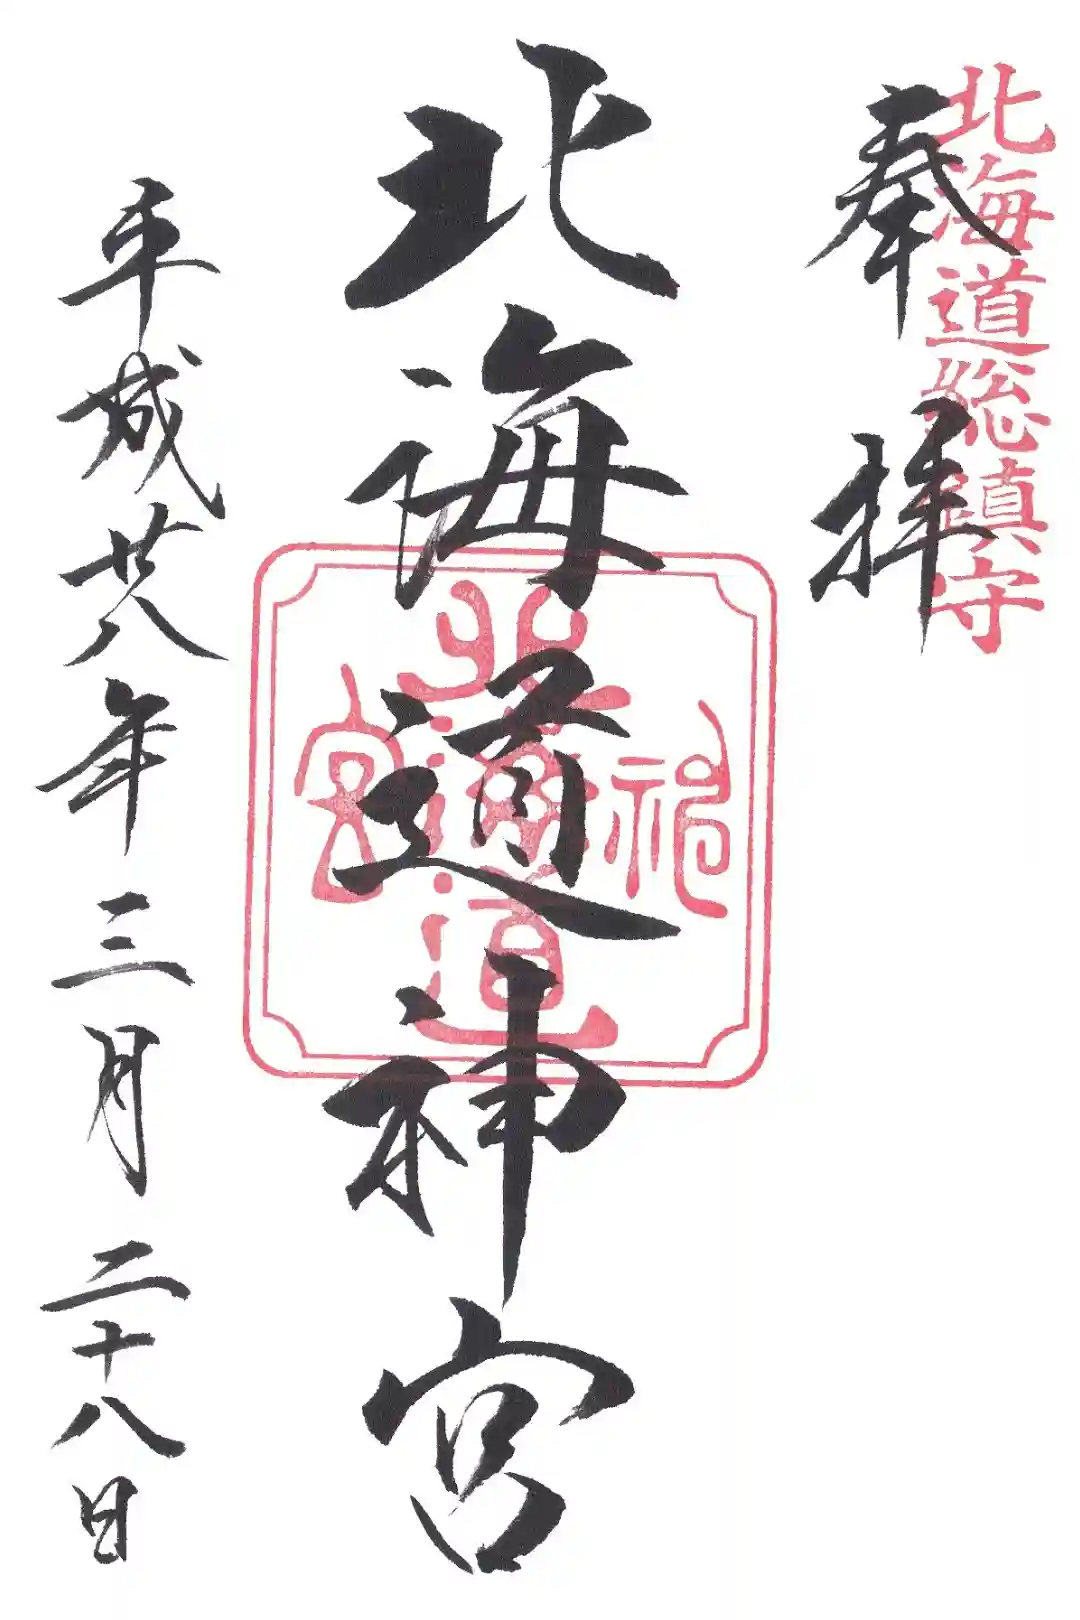 北海道総鎮守
奉拝
北海道神宮
北海道神宮
平成廿八年三月二十八日